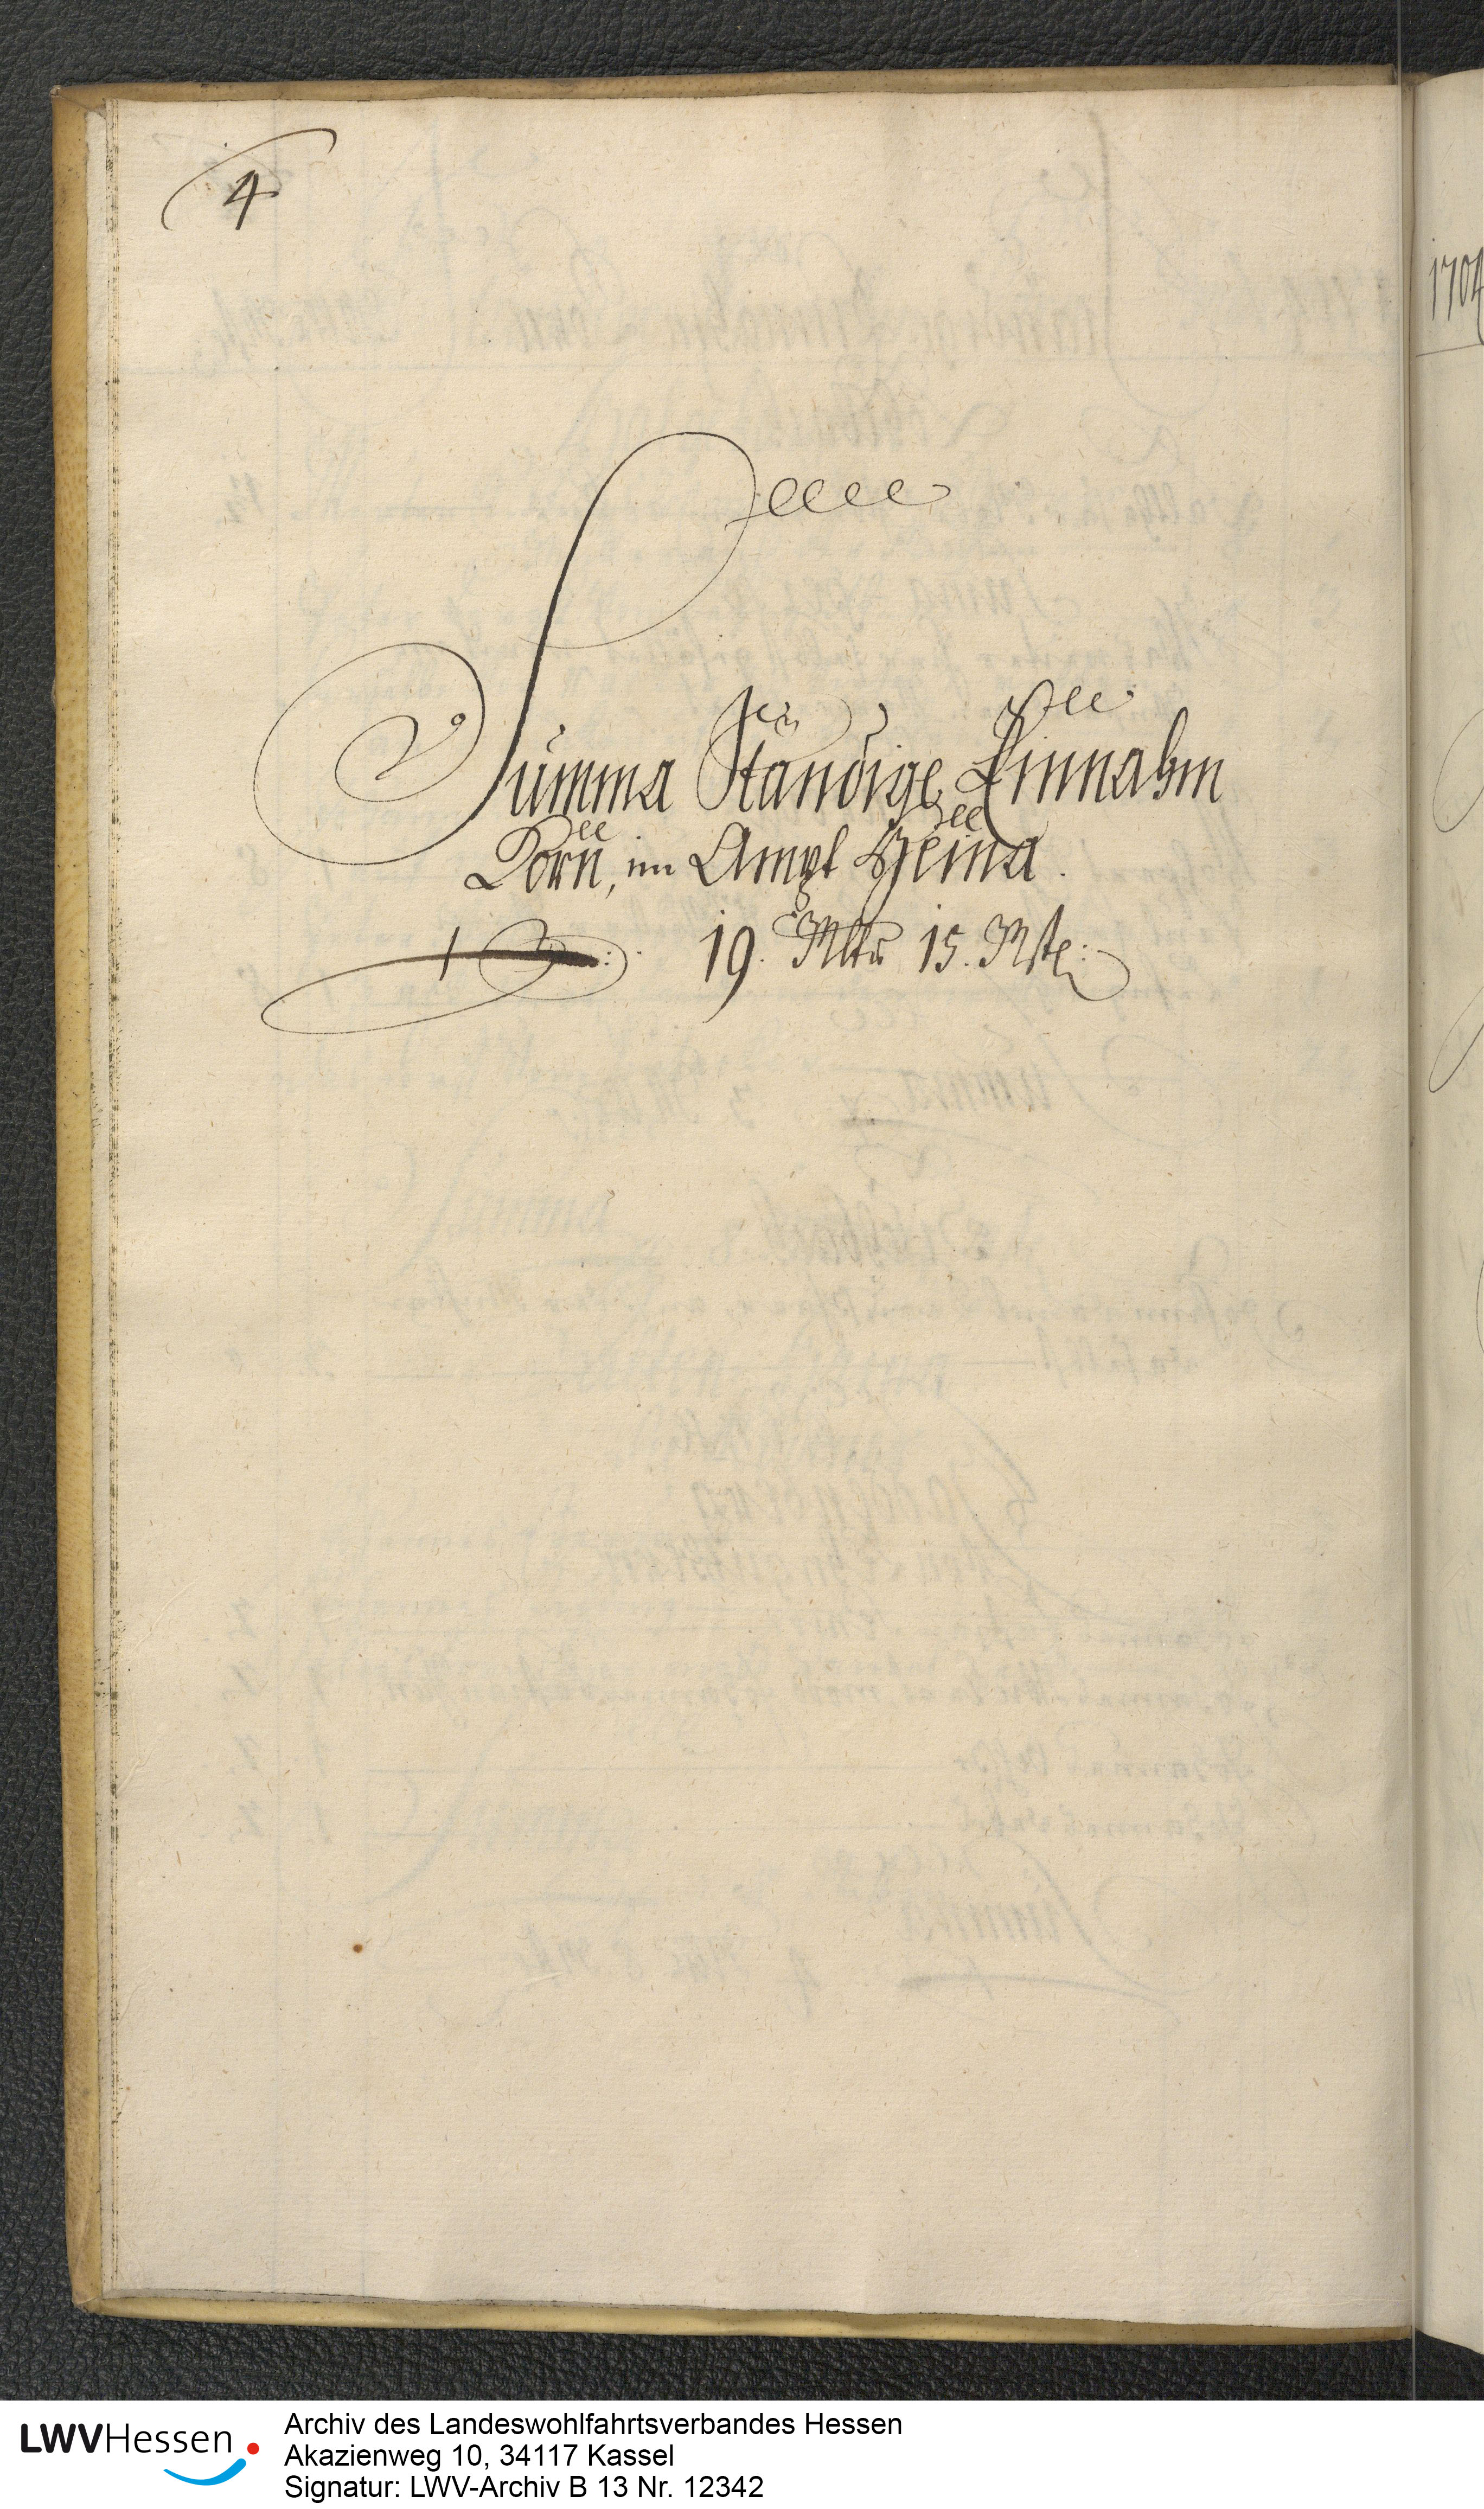 4
Summa Ständige Einnahm
Korn, im Ampt Heina.
19. Mltr 15. Mste:
1704
LWVHessen
Archiv des Landeswohlfahrtsverbandes Hessen
Akazienweg 10, 34117 Kassel
Signatur: LWV-Archiv B 13 Nr. 12342